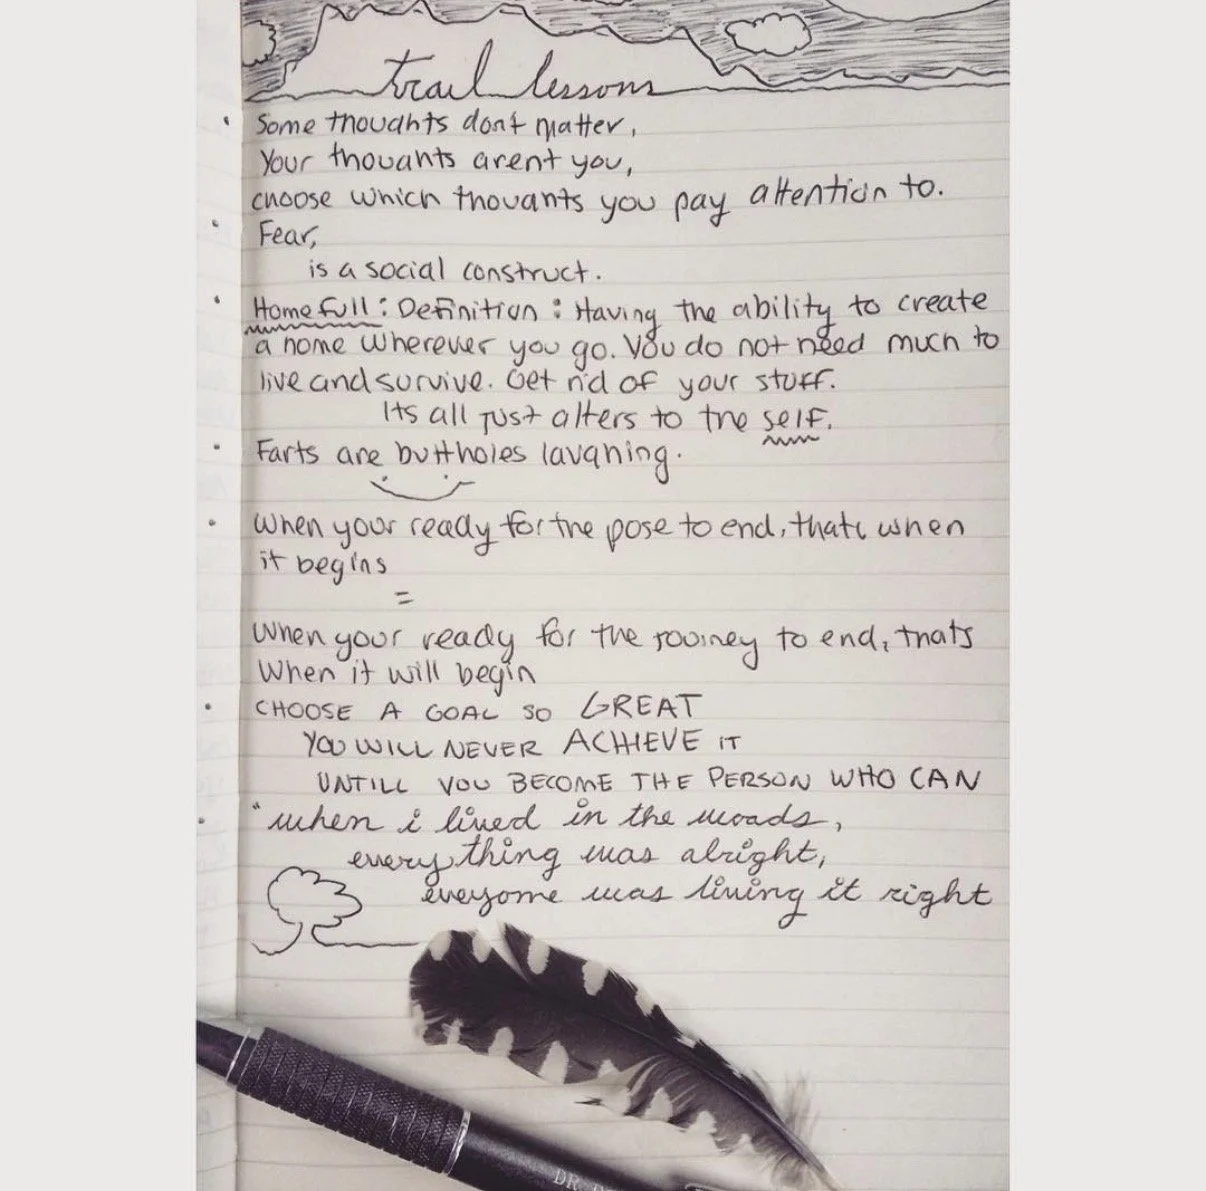 trail lessons
• Some thoughts dont matter,
Your thoughts arent you,
choose which thoughts you pay attention to.
• Fear,
is a social construct.
• Homefull: Definition: Having the ability to create
a home wherever you go. You do not need much to
live and survive. Get rid of your stuff.
Its all just alters to the self.
• Farts are buttholes laughing.
• When your ready for the pose to end, thats when
it begins
=
When your ready for the journey to end, thats
When it will begin
• CHOOSE A GOAL SO GREAT
YOU WILL NEVER ACHIEVE IT
UNTILL YOU BECOME THE PERSON WHO CAN
• "when i lived in the woods,
everything was alright,
everyone was living it right
DR.